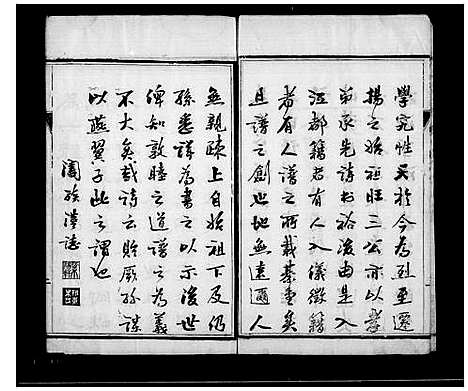 學究性天於今為烈至遷
揚之始祖旺三公亦以孝
弟承先詩書裕後由是入
江都籍者有人入儀徵籍
者有人譜之所載綦重矣
且譜之創也地無遠邇人
無親疎上自始祖下及仍
孫悉詳為書之以示後世
俾知敦睦之道譜之為義
不大矣哉詩云貽厥孫謀
以燕翼子此之謂也